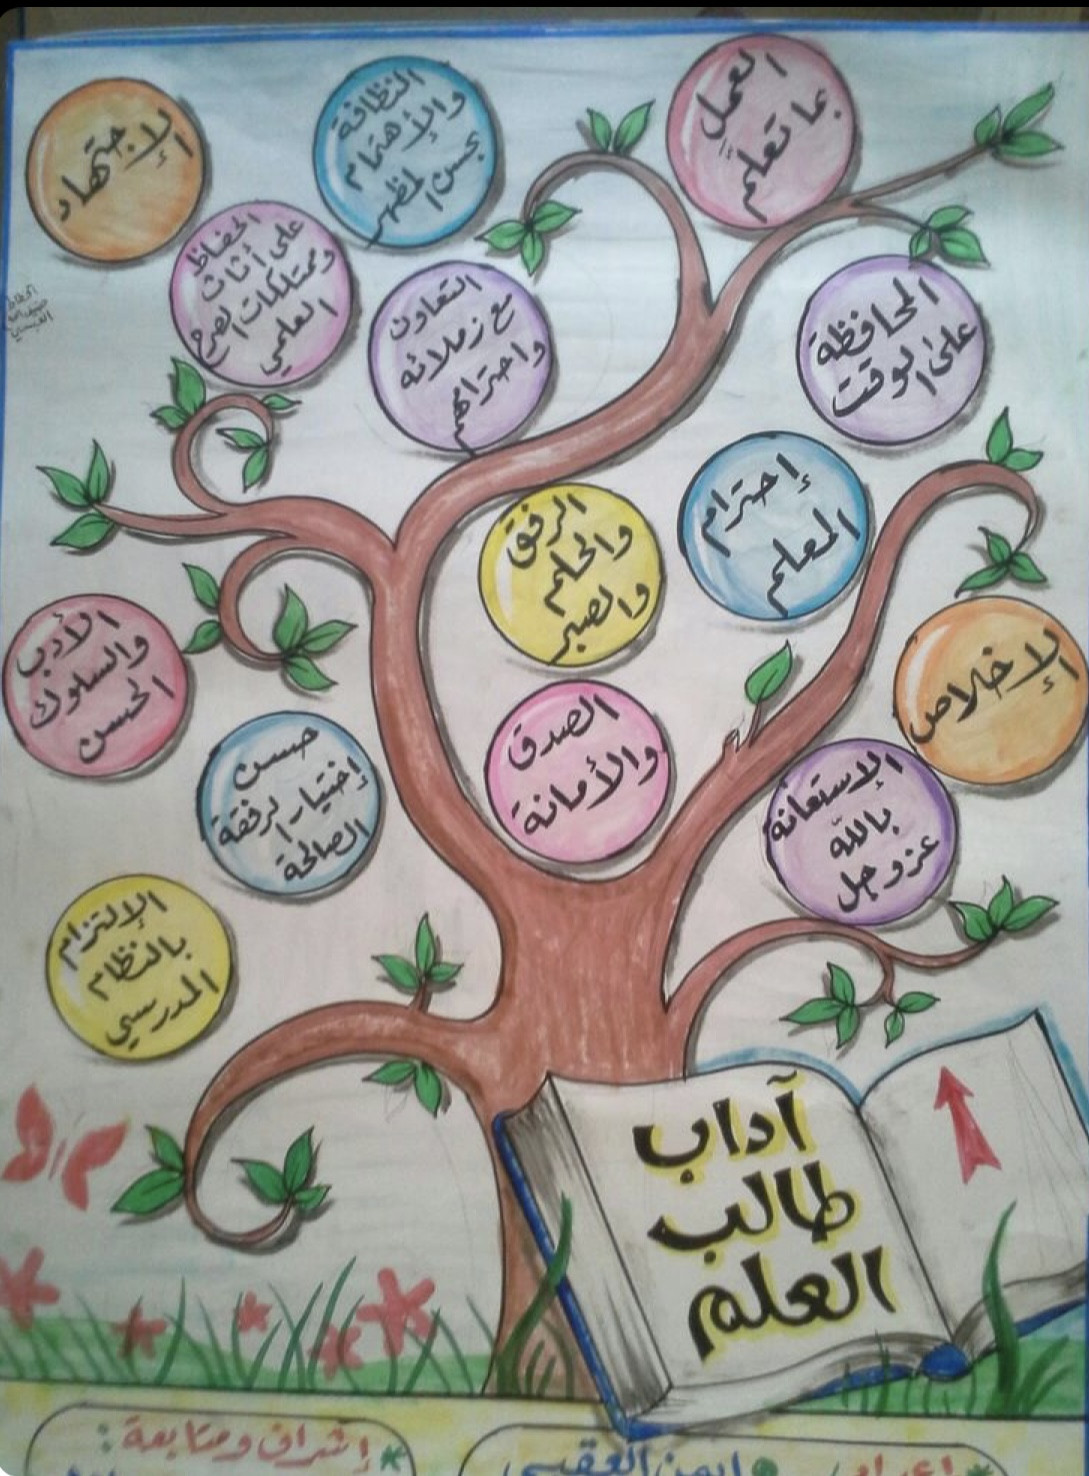 العمل
بما تعلم
النظافة
والأهتمام
بحسن المظهر
الإجتهاد
الحفاظ
على أثاث
وممتلكات الصرح
العلمي
التعاون
مع زملائه
واحترامهم
المحافظة
على الوقت
إحترام
المعلم
الرفق
والحلم
والصبر
الإخلاص
الأدب
والسلوك
الحسن
الصدق
والأمانة
حسن
إختيار الرفقة
الصالحة
الإستعانة
بالله
عز وجل
الإلتزام
بالنظام
المدرسي
آداب
طالب
العلم
* إشراف ومتابعة: